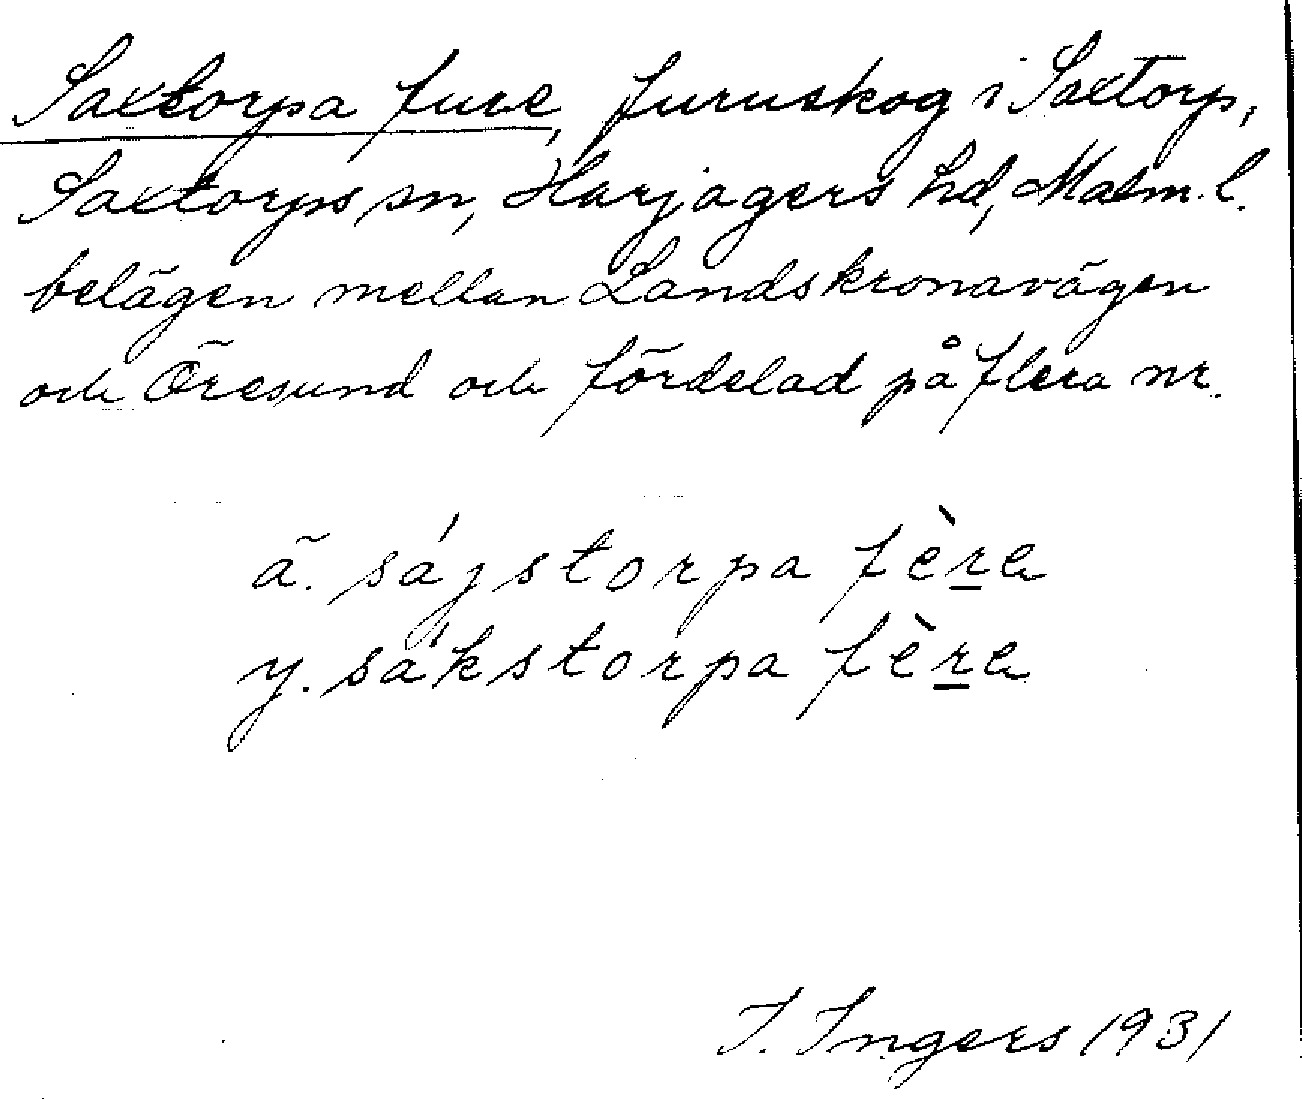 Saxtorpa fure, furuskog i Saxtorp,
Saxtorps sn, Harjagers hd, Malm. l.
belägen mellan Landskronavägen
och Öresund och fördelad på flera nr.
ä. sájstorpa fèra
y. sákstorpa fèra
I. Ingers 1931